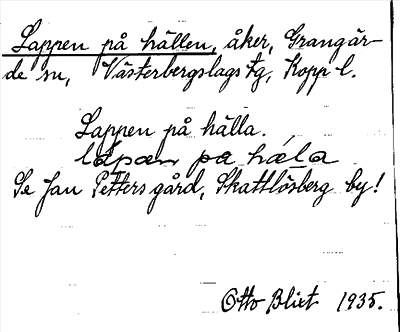 Lappen på hällen, åker, Grangär-
de sn, Västerbergslags tg, Kopp l.
Lappen på hälla.
på
Se Jan Petters gård, Skattlösberg by!
Otto Blixt 1935.